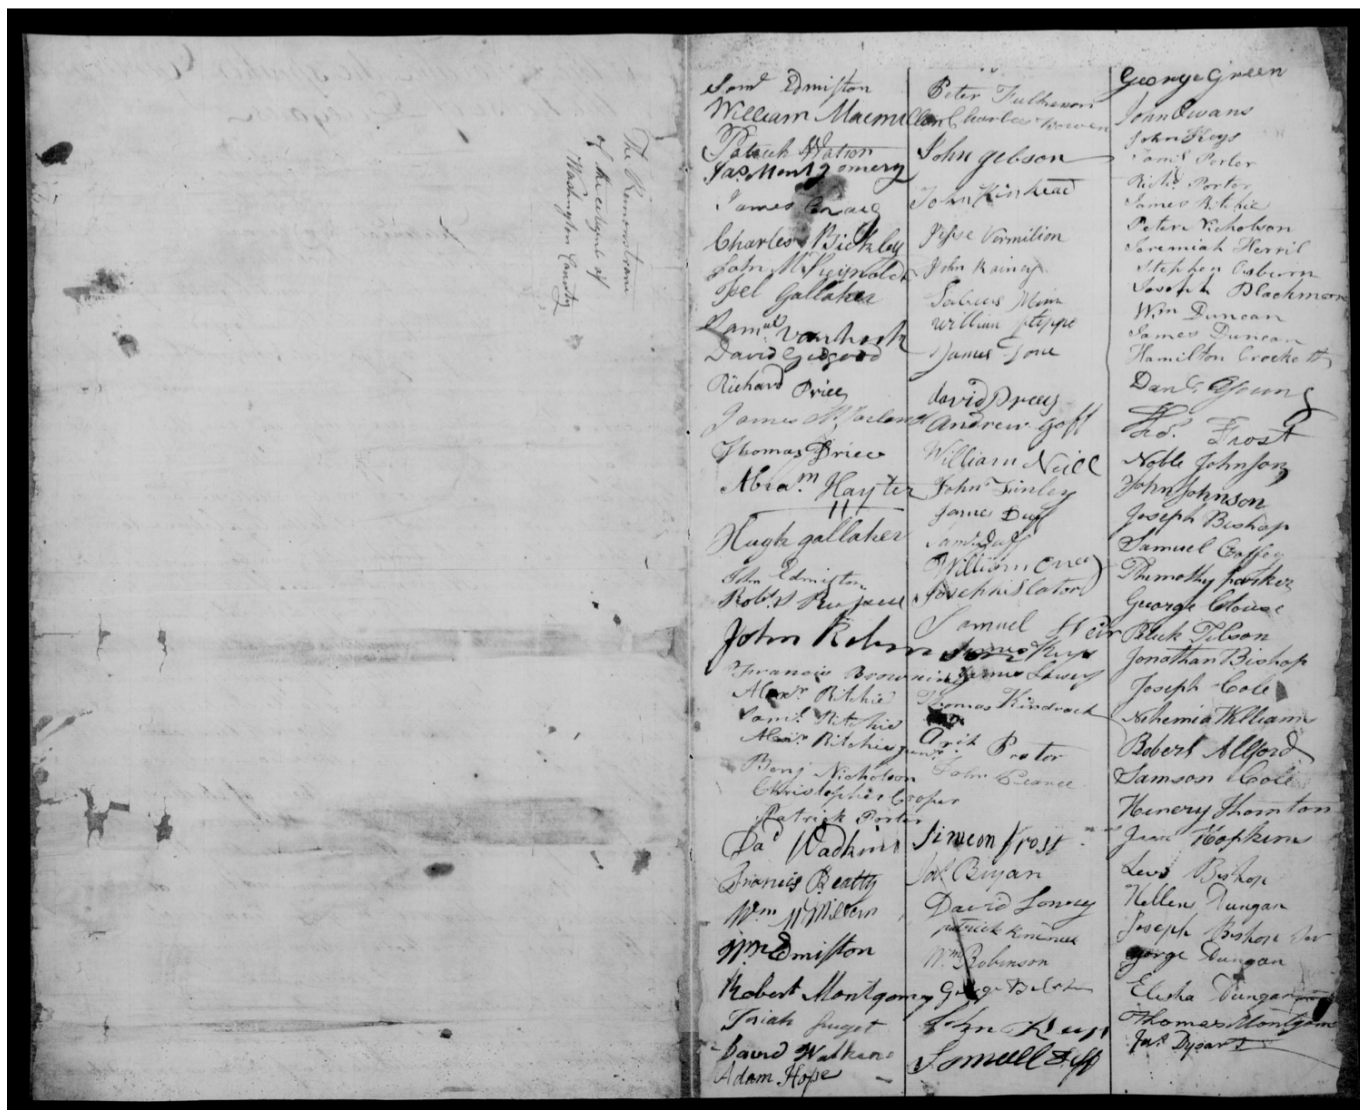 The Remonstrance
of the citizens of
Washington County
Saml Edmiston
William Macmillan
Patrick Watson
Jas Montgomery
James Craig
Charles Bickley
John McReynolds
Joel Gallaher
Samuel Vanhook
David Gidgood
Richard Price
James
Thomas Price
Abram Hayter
Hugh gallaher
John Edmiston
Robt
John
Francis Browning
Alexr Ritchie
Saml Ritchie
Alexr Ritchie junr
Benj Nicholson
Christopher Cooper
Patrick Porter
Da Wadkins
Francis Beatty
Wm
Wm Edmiston
Robert Montgomery
Josiah
David Watkins
Adam Hope
Peter Fulkerson
Charles Bowen
John gibson
John Kinkead
Jesse Vermilion
John Rainey
William
James
david Prees
Andrew Goff
William Neill
John Finley
James Duff
Saml Duff
William
Joseph
Samuel Weir
James Keys
James
Thomas Kindrick
Prator
John Pearce
Simeon Frost
Jas Bryan
David Lowry
patrick
Wm Robinson
George
John Keys
Samuell Duff
George Green
John Owans
John Keys
Saml Porter
Richd Porter
James Ritchie
Peter Nicholson
Jeremiah Herril
Stephen Osburn
Joseph Blackmore
Wm Duncan
James Duncan
Hamilton Crockett
Danl Young
Thos. Frost
Noble Johnson
John Johnson
Joseph Bishop
Samuel Coffey
Themothy parker
George Clouse
Tilson
Jonathan Bishop
Joseph Cole
Nehemia William
Robert Allford
Samson Cole
Henery Thornton
Hopkins
Levi Bishop
Kellen Dungan
Joseph Bishop
gorge Dungan
Elisha Dungan
Thomas Montgom
Jas Dysart